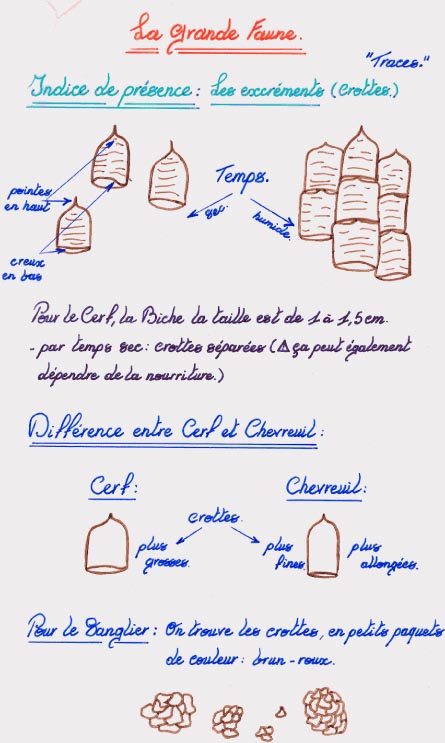 La Grande Faune.
"Traces."
Indice de présence : Les excréments (Crottes.)
pointes
en haut
creux
en bas
Temps.
sec.
humide.
Pour le Cerf, la Biche la taille est de 1 à 1,5 cm.
- par temps sec : crottes séparées (⚠ ça peut également
dépendre de la nourriture.)
Différence entre Cerf et Chevreuil :
Cerf :
Chevreuil :
crottes.
plus
grosses.
plus
fines.
plus
allongées.
Pour le Sanglier : On trouve les crottes, en petits paquets
de couleur : brun-roux.